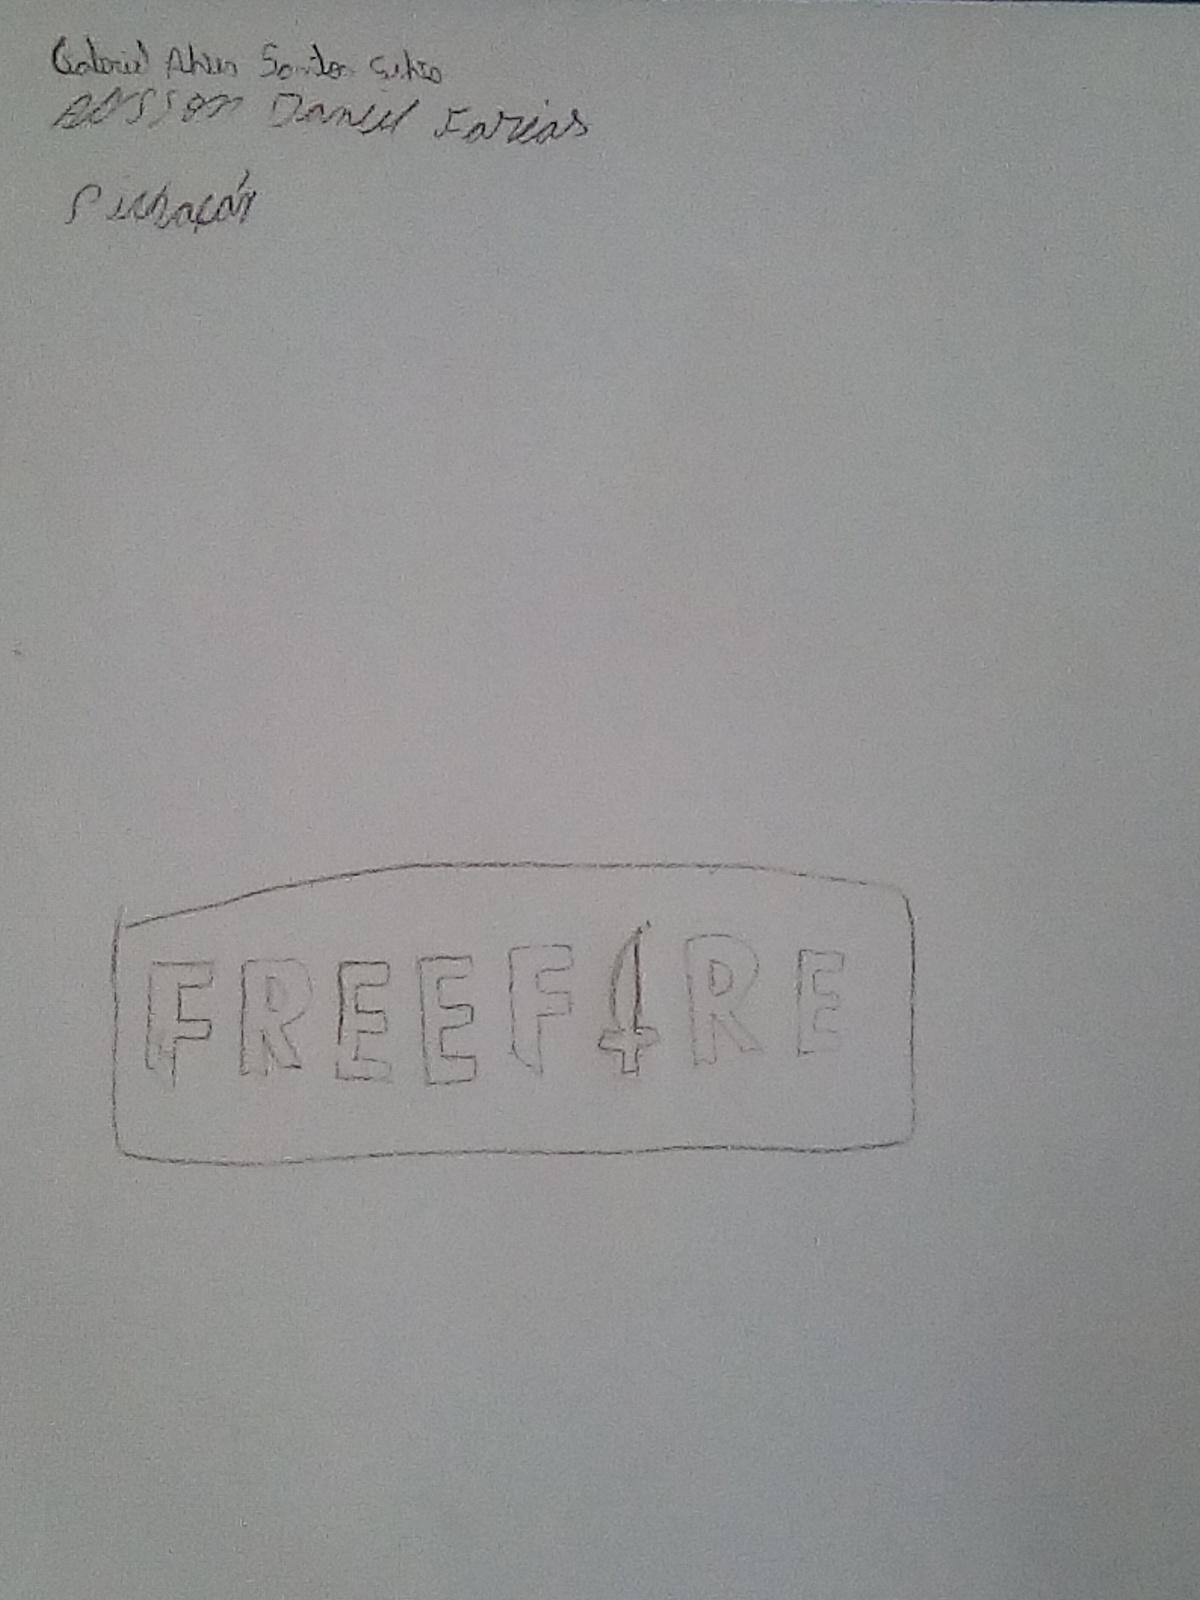 Gabriel Alves Santos Silva
Daniel Farias
Pichação
FREE FIRE